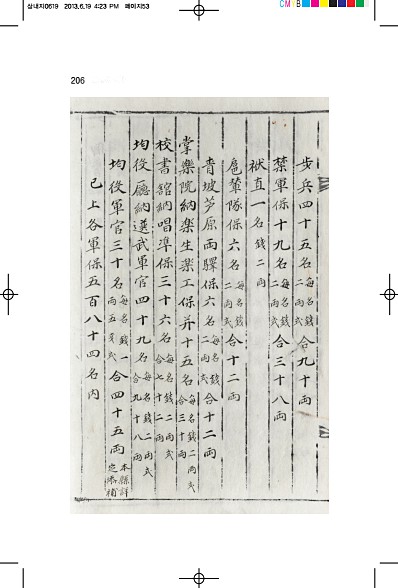 삼내지0619 2013.6.19 4:23 PM 페이지53
CMYB
206
步兵四十五名每名錢二兩式合九十兩
禁軍保十九名每名錢二兩式合三十八兩
直一名錢二兩
扈輦隊保六名每名錢二兩式合十二兩
青坡芦原兩驛保六名每名錢二兩式合十二兩
掌樂院納樂生樂工保并十五名每名錢二兩式合三十兩
校書舘納唱準保三十六名每名錢二兩式合七十二兩
均役廳納選武軍官四十九名每名錢二兩式合九十八兩
均役軍官三十名每名錢一兩五戔式合四十五兩本縣詳定添補
已上各軍保五百八十四名內